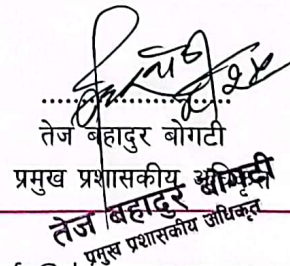 तेज बहादुर बोगटी
प्रमुख प्रशासकीय अधिकृत
तेज बहादुर बोगटी
प्रमुख प्रशासकीय अधिकृत